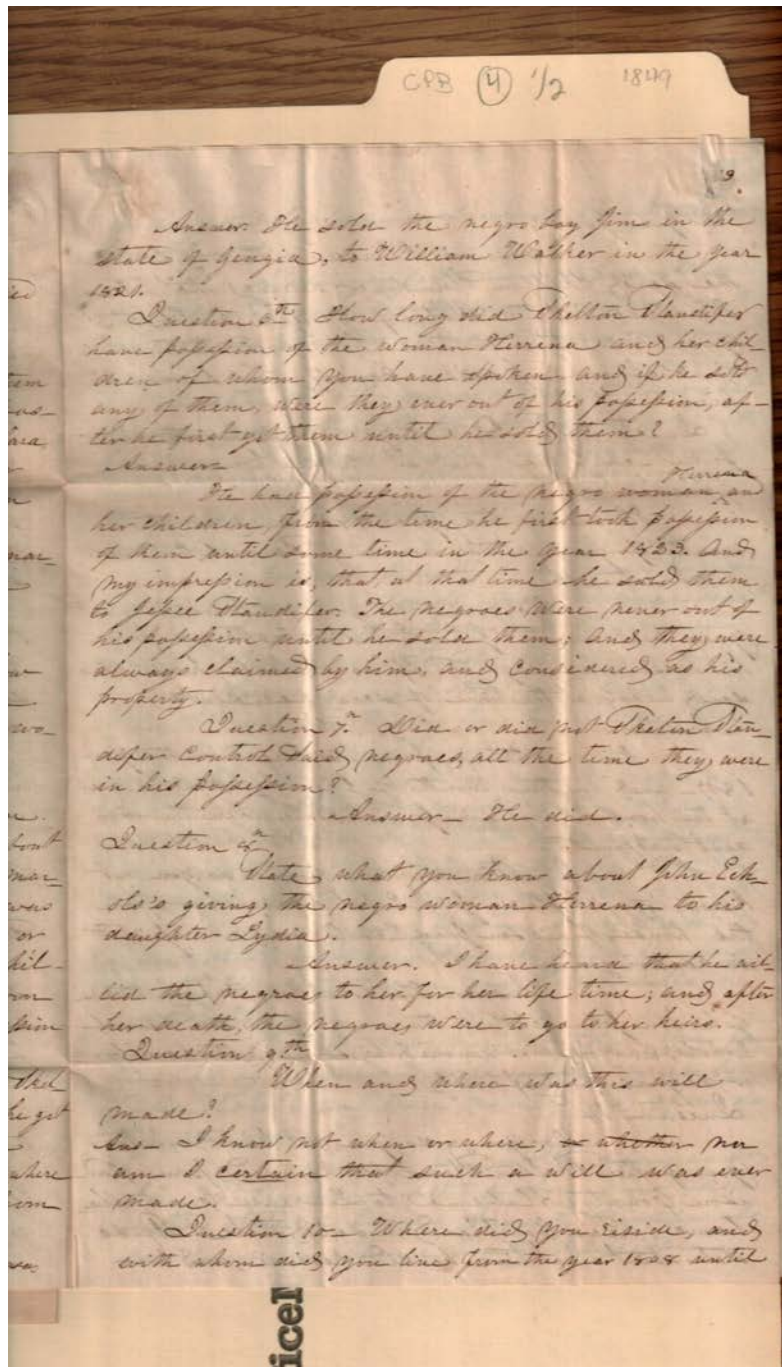 CPB 4 1/2 1849
Answer. He sold the negro boy Jim in the
state of Georgia, to William Walker in the year
1821.
Question 6th How long did Skelton Standifer
have possession of the woman Herrena and her chil-
dren of whom you have spoken and if he sold
any of them, were they ever out of his possession, af-
ter he first got them until he sold them?
Answer-
He had possession of the negro woman Herrena and
her children, from the time he first took possession
of them until some time in the year 1823. And
my impression is, that at that time he sold them
to Jesse Standifer. The negroes were never out of
his possession until he sold them; and they were
always claimed by him, and considered as his
property.
Question 7th Did or did not Skelton Stan-
difer control said negroes, all the time they were
in his possession?
Answer- He did.
Question 8th
State what you know about John Ech-
ols's giving the negro woman Herrena to his
daughter Lydia.
Answer. I have heard that he wil-
led the negroes to her for her life time; and after
her death, the negroes were to go to her heirs.
Question 9th
When and where was this will
made?
Ans- I know not when or where, or whether nor
am I certain that such a will was ever
made.
Question 10- Where did you reside, and
with whom did you live from the year 1808 until
tem
or
mar-
wo-
bout
mar-
was
or
hil-
he got
where
icel